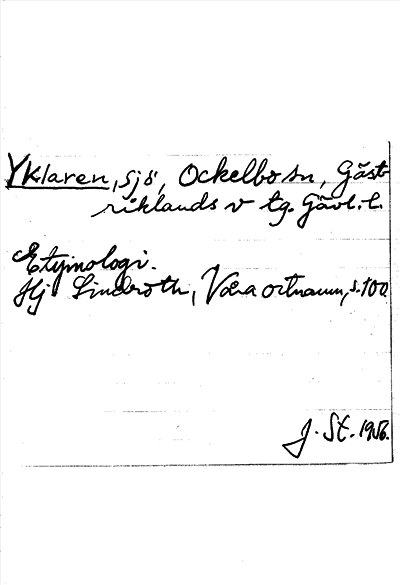 Yklaren, sjö, Ockelbo sn, Gäst-
riklands v tg. Gävl. l.
Etymologi.
Hj Lindroth, Våra ortnamn, s. 100
J. St. 1956.